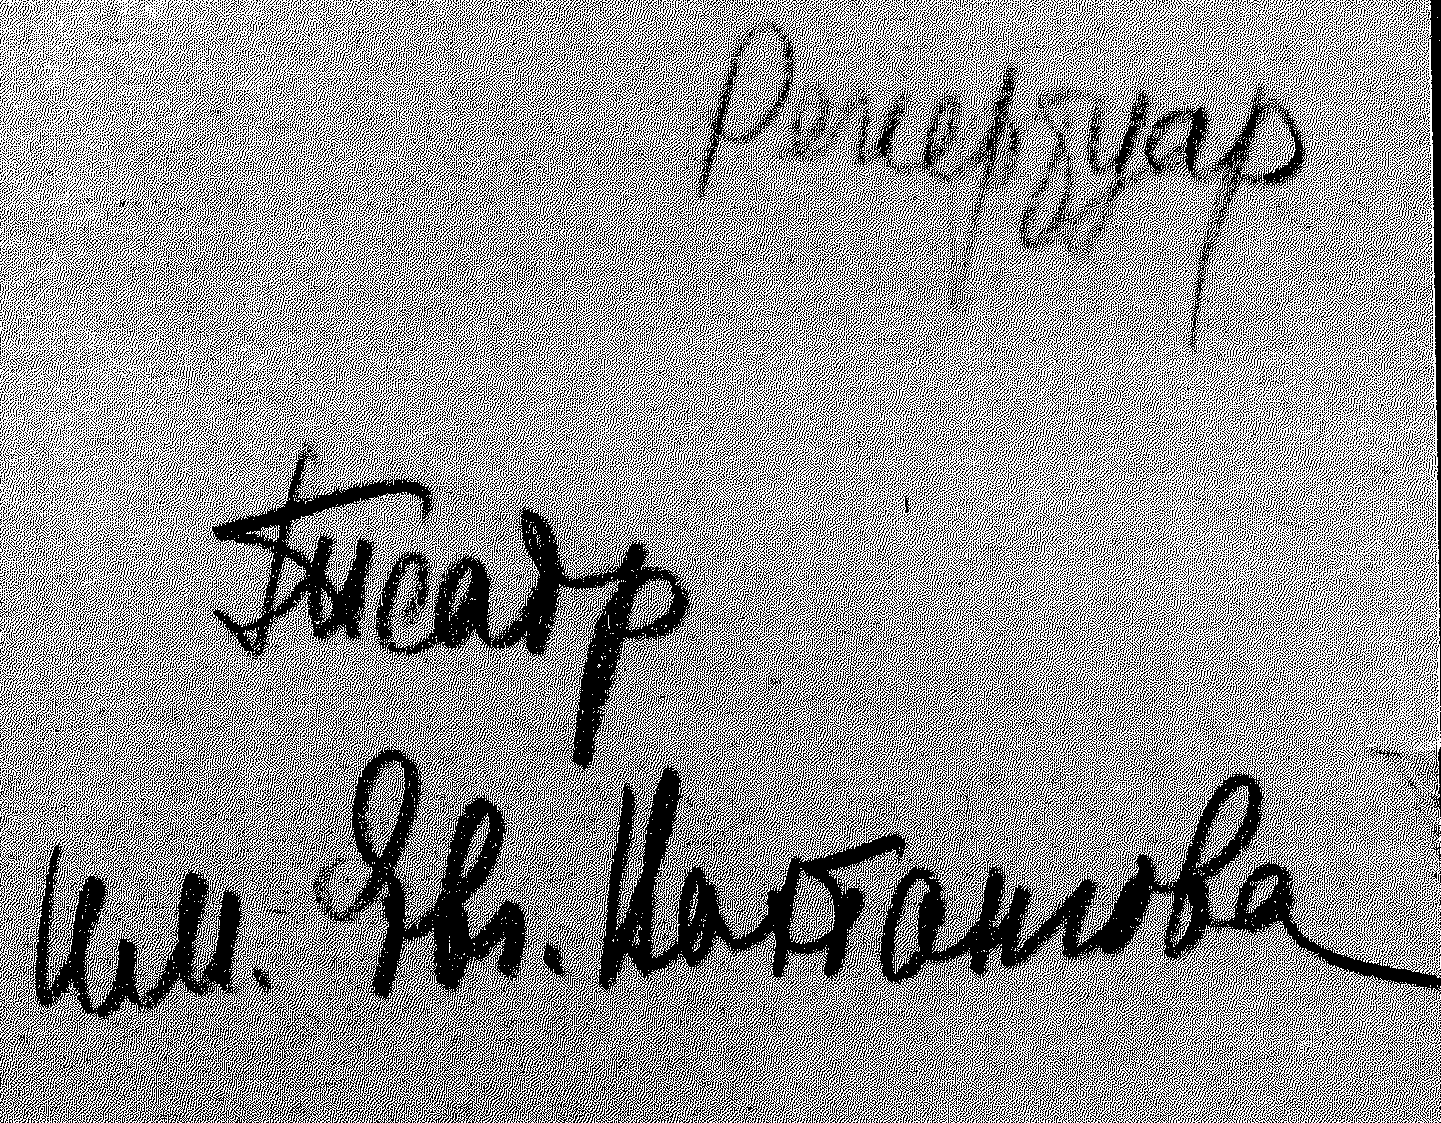 Репертуар
Театр
им. Евг. Вахтангова